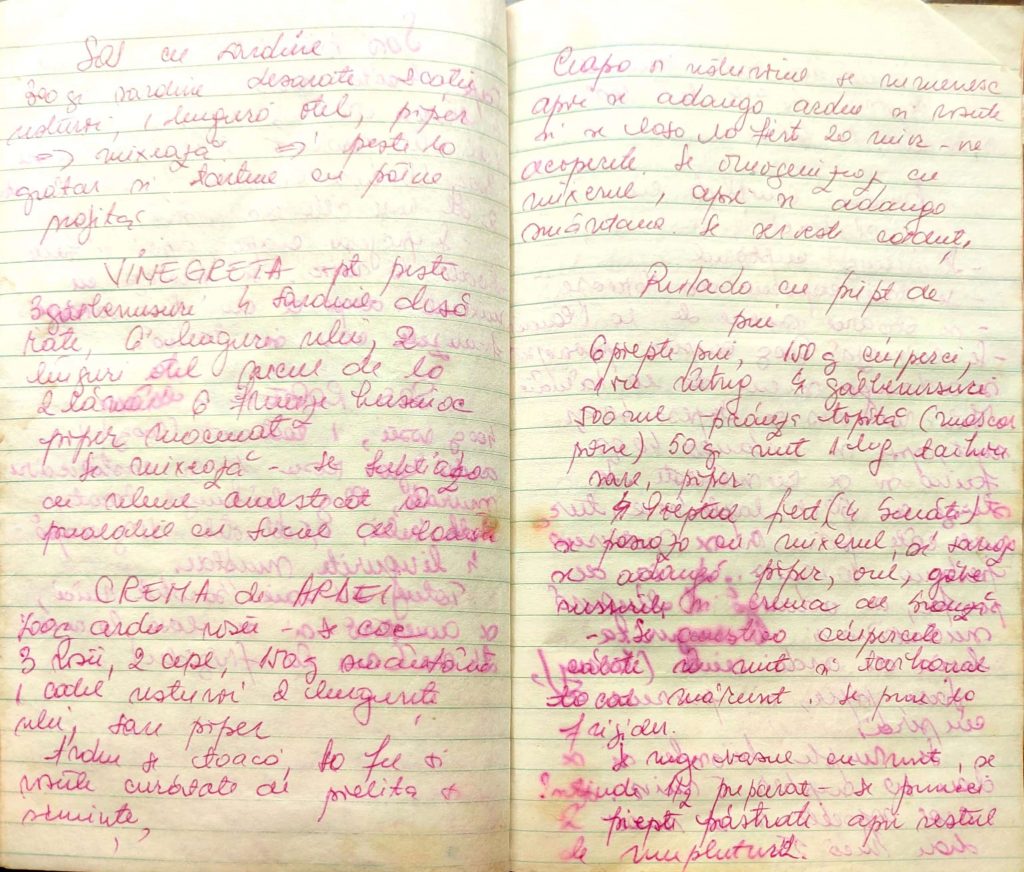 Sos cu sardine
300 g sardine desarate 2 căței
usturoi, 1 lingură oțet, piper
=> mixează => pește la
grătar si tartine cu pâine
prăjită
VINEGRETA pt pește
3 gălbenusuri 4 sardine desă
rate, 6 linguri ulei, 2
linguri oțet sucul de la
2 lămâi 6 frunze busuioc
piper măcinat
se mixează - se
cu uleiul amestecat
cu sucul de lămâie
CREMA de ARDEI
700 g ardei rosii - se coc
3 rosii, 2 cepe, 150 g smântână
1 catel usturoi 2 lingurite
ulei, sare piper
Ardeii se toacă, la fel si
rosiile curatate de pielita si
seminte,
Ceapa si usturoiul se rumenesc
apoi se adauga ardeii si rosiile
si se lasa la fiert 20 min - ne
acoperite. Se omogenizeaza cu
mixerul, apoi se adauga
smântana. Se serveste
Rulada cu piept de
pui
6 piepti pui, 150 g ciuperci,
1 ou întreg 4 gălbenusuri
500 ml brânză topită (mascar
pone) 50 g unt 1 leg tarhon
sare, piper
4 Pieptul fiert (4 bucăți)
se paseaza cu mixerul,
se adaugă piper, oul, gălbe
nusurile si crema de brânză
- Se ciupercile
călite mărunt si tarhonul
tocat mărunt. Se pune la
frigider.
- Se unge vasul cu unt, se
întinde 1/2 preparat - se pun cei
2 piepti păstrati apoi restul
de umplutură.